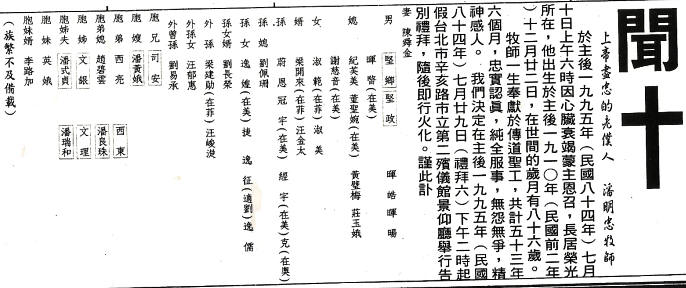 聞
十
上帝盡忠的老僕人 潘明忠牧師
於主後一九九五年(民國八十四年)七月
十日上午六時因心臟衰竭蒙主恩召,長居榮光
所在,他出生於主後一九一〇年(民國前二年
)十二月廿二日,在世間的歲月有八十六歲。
牧師一生奉獻於傳道聖工,共計五十三年
六個月,忠實認眞,純全服事,無怨無爭,精
神感人。我們決定在主後一九九五年(民國
八十四年)七月廿九日(禮拜六)下午二時起
假台北市辛亥路市立第二殯儀館景仰廳舉行告
別禮拜,隨後卽行火化。謹此訃
妻 陳舜金
男 堅鄉 堅政 暉皓 暉暘
暉晳(在美)
媳 紀英美 董聖婉(在美) 黃壁梅 莊玉娥
謝慈音(在美)
女 淑範(在菲) 淑美
婿 梁開來(在菲) 汪金太
孫 蔚恩 冠宇(在美) 經宇(在美) 克(在奧)
孫媳 劉佩珊
孫女 逸嬑(在美) 捷 逸征(適劉) 逸儒
孫女婿 劉長榮
外孫 梁建勛(在菲) 汪峻澍
外孫女 汪郁惠
外曾孫 劉易承
胞兄 司安
胞嫂 潘黃娥
胞弟 西亮 西東
胞弟媳 趙碧雲 潘良珠
胞姊 文銀 文理
胞姊夫 潘式貞 潘瑞和
胞妹 英娥
胞妹婿 李路加
(族繁不及備載)